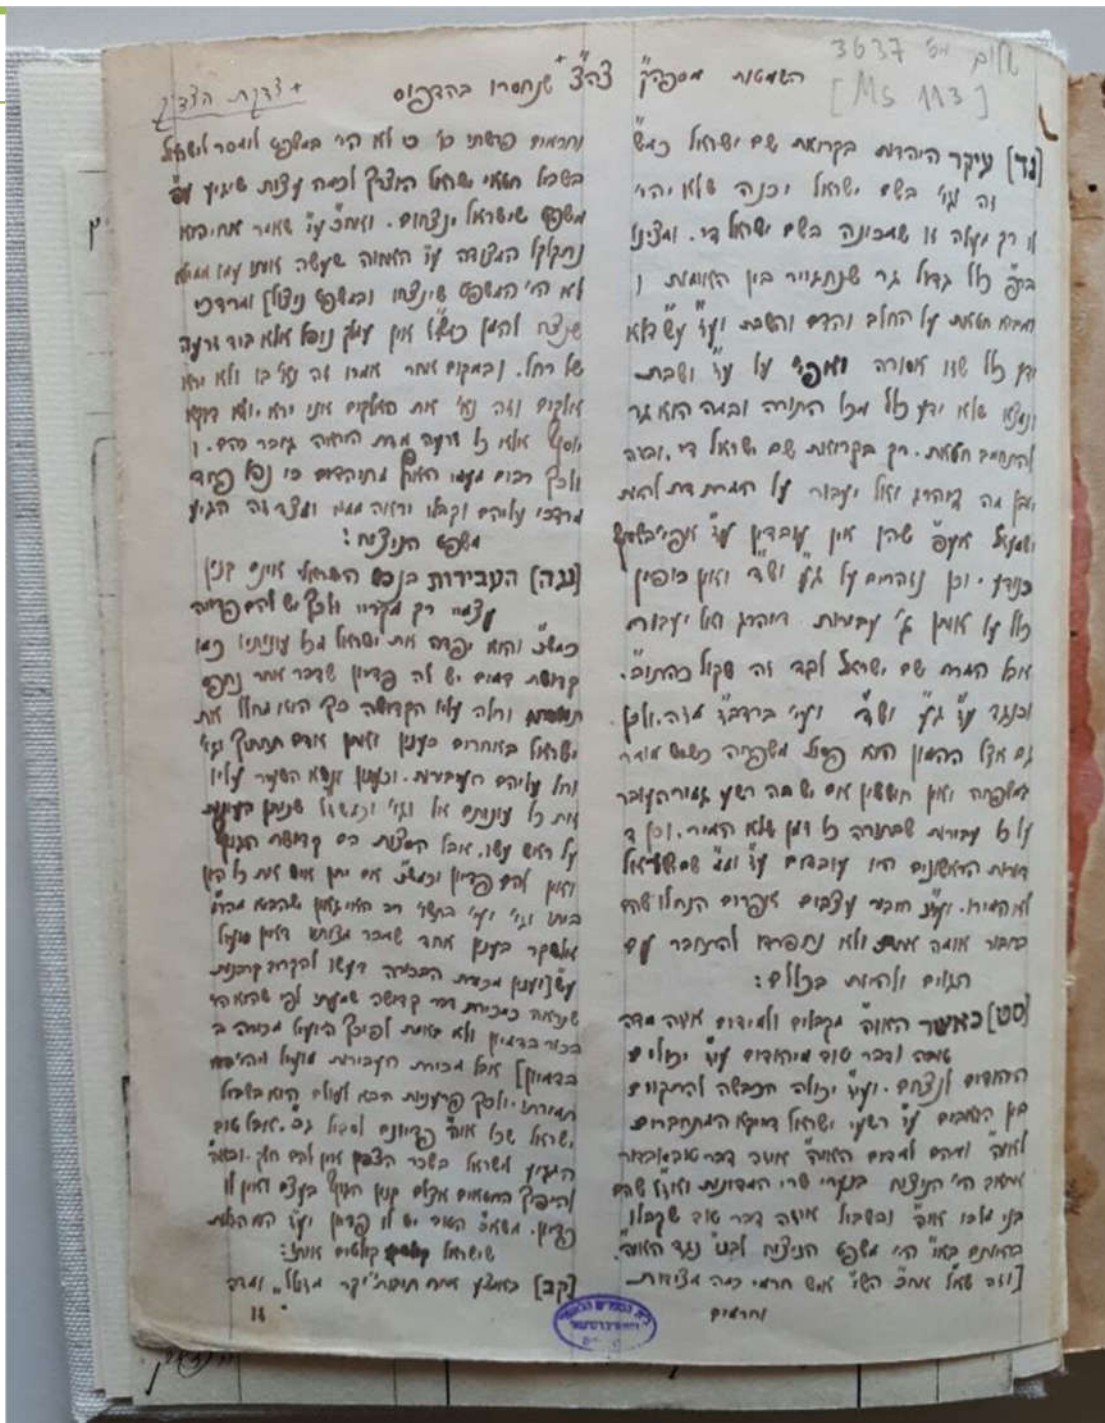 שלום מס 3637
[Ms 113]
השמטות מספה"ק צה"צ + שנחסרו בהדפוס
+ צדקת הצדיק
[נד] עיקר היהדות בקריאת שם ישראל כמש"
זה יאמר וגו' בשם ישראל יכנה שלא יהי'
לו רק מעלה זו שמכונה בשם ישראל די. ומצינו
בפ' כלל גדול גר שנתגייר בין האומות ו
ומביא חטאת על החלב והדם והשבת וע"ז ע"ש דלא
ידע כלל שזו אסורה ואפי' על ע"ז ושבת.
ונמצא שלא ידע כלל מכל התורה ובמה הוא גר
להתחייב חטאת. רק בקריאת שם ישראל די. ובזה
יובן מה דיהרג ואל יעבור על המרת דת לדת
ישמעאל אע"פ שהן אין עובדין ע"ז אפי' בשיתוף
כנודע. וכן נזהרים על ג"ע וש"ד ואין כופין
כלל על אותן ג' עבירות דיהרג ואל יעבור
אבל המרת שם ישראל לבד זה שקול כהתור'.
וכנגד ע"ז ג"ע וש"ד ועי' ברדב"ז מזה. ולכן
גם אצל ההמון הוא פסול משפחה כשיש מומר
במשפחה ואין חוששין אם יש מה רשע גמור העובר
על כל עבירות שבתורה כל זמן שלא המיר. וכן ד
דורות הראשונים היו עובדים ע"ז ומ"מ שם ישראל
לא המירו. וע"ז חבור עצבים אפרים הנח לו שהם
בחבור אומה אחת ולא נתפרדו להתחבר עם
הגוים ולהיות בכללם:
[סט] כאשר האוה"ע מקבלים ולמידים איזה מדה
טובה ודבר טוב מיהודים עי"ז יכולים
היהודים לנצחם. ועי"ז יכולה הכבשה להתקיים
בין הזאבים ע"י רשעי ישראל דמיבא המתחברים
לאוה"ע ומהם למדים האוה"ע איזה דבר טוב ובדור
אחאב הי' הניצוח בנערי שרי המדינות שהם
בני מלכי אוה"ע ובשביל איזה דבר טוב שקבלו
בהיותם בא"י הי' משפט הניצוח לבנ"י נגד האוה"ע.
[וזה שאל אח"כ השי"ת איש חרמי כמה מצודות
וחרמים
וחרמים פרשתי כו' כי לא הי' במשפט למסר לישראל
בשביל חטאי ישראל הוצרך לכמה עצות שיגיע ע"פ
משפט שישראל ינצחום. ואח"כ ע"י שאמר אחי הוא
נתקלקל המצודה ע"י האחוה שעשה אותו עמו ממילא
לא הי' המשפט שינצחו ובמשפט ניצול] ומרדכי
שנצח להמן כמש"ל אין עמלק נופל אלא ביד זרעה
של רחל. ובמקום אחר אמרו זה נא' בו ולא ירא
אלקים וזה נא' את האלקים אני ירא. ולא דוקא
יוסף אלא כל זרעה מדת היראה גובר בהם. ו
ולכך רבים מעמי הארץ מתיהדים כי נפל פחד
מרדכי עליהם וקבלו יראה ממנו ומצד זה הגיע
משפט הניצוח:
[עה] העבירות בנפש הישראלי אינם קנין
עצמי רק מקריי ולכך יש להם פדיה
כמש"כ והוא יפדה את ישראל מכל עונותיו כמו
קדושת דמים יש לה פדיון שדבר אחר נתפס
תחתיה וחלה עליו הקדושה כך הוא מחלל את
ישראל באחרים כענין ואתן אדם תחתיך וגו'
וחל עליהם העבירות. וכענין ונשא השעיר עליו
את כל עונותם אל וגו' וכמש"ל שניתן העונות
על ראש עשו. אבל המצות הם קדושת הגוף
ואין להם פדיון וכמש"כ אם יתן איש את כל הון
ביתו וגו' ועי' בתשו' רב האי גאון שהביא מהר"ם
אלשקר בענין אחד שמכר מצותיו דאין מועיל
ע"ש [וענין מכירת הבכורה דעשו להקריב קרבנות
שנראה כמכירת דבר קדושה שמעתי לפי שהוא הי'
בכור בדמיון ולא באמת לפיכך הועיל מכירה ב
בדמיון] אבל מכירת העבירות מועיל
תמורתו. ולכך פרענות הבא לעולם הוא בשביל
ישראל שכל אוה"ע פדיונם לסבול גם'. אבל טוב
המגיע לישראל בשכר הצדק אין להם חלק. ובאוה"ע
להיפוך החטאים אצלם קנין הגוף בעצם ואין לו
פדיון. משא"כ הטוב יש לו פדיון ועי"ז המזלות
שישראל קולטים אותו:
[קב] באמצע אות תיבת "יקר מזולל" ומזה